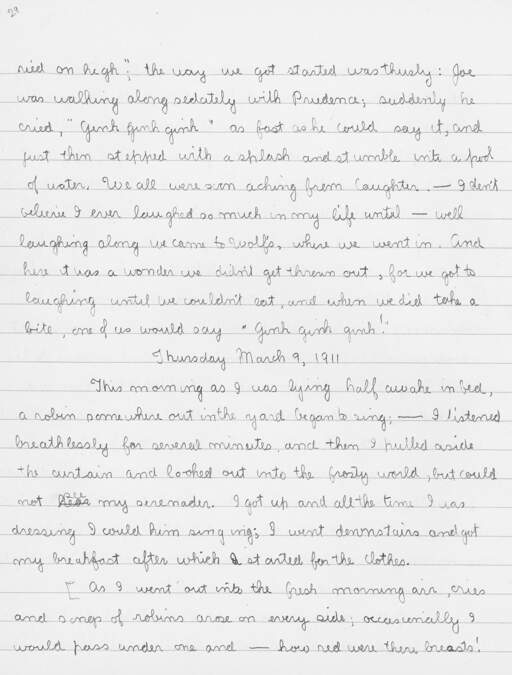 29
ried on high"; the way we got started was thusly: Joe
was walking along sedately with Prudence; suddenly he
cried, "Gink gink gink" as fast as he could say it, and
just then stepped with a splash and stumble into a pool
of water. We all were soon aching from laughter. — I don't
believe I ever laughed so much in my life until — well
laughing along we came to Wolf's, where we went in. And
here it was a wonder we didn't get thrown out, for we got to
laughing until we couldn't eat, and when we did take a
bite, one of us would say "Gink gink gink!"
Thursday March 9, 1911
This morning as I was lying half awake in bed,
a robin somewhere out in the yard began to sing; — I listened
breathlessly for several minutes, and then I pulled aside
the curtain and looked out into the frosty world, but could
not see my serenader. I got up and all the time I was
dressing I could him singing; I went downstairs and got
my breakfast after which I started for the clothes.
[ As I went out into the fresh morning air, cries
and songs of robins arose on every side; occasionally I
would pass under one and — how red were there breasts!